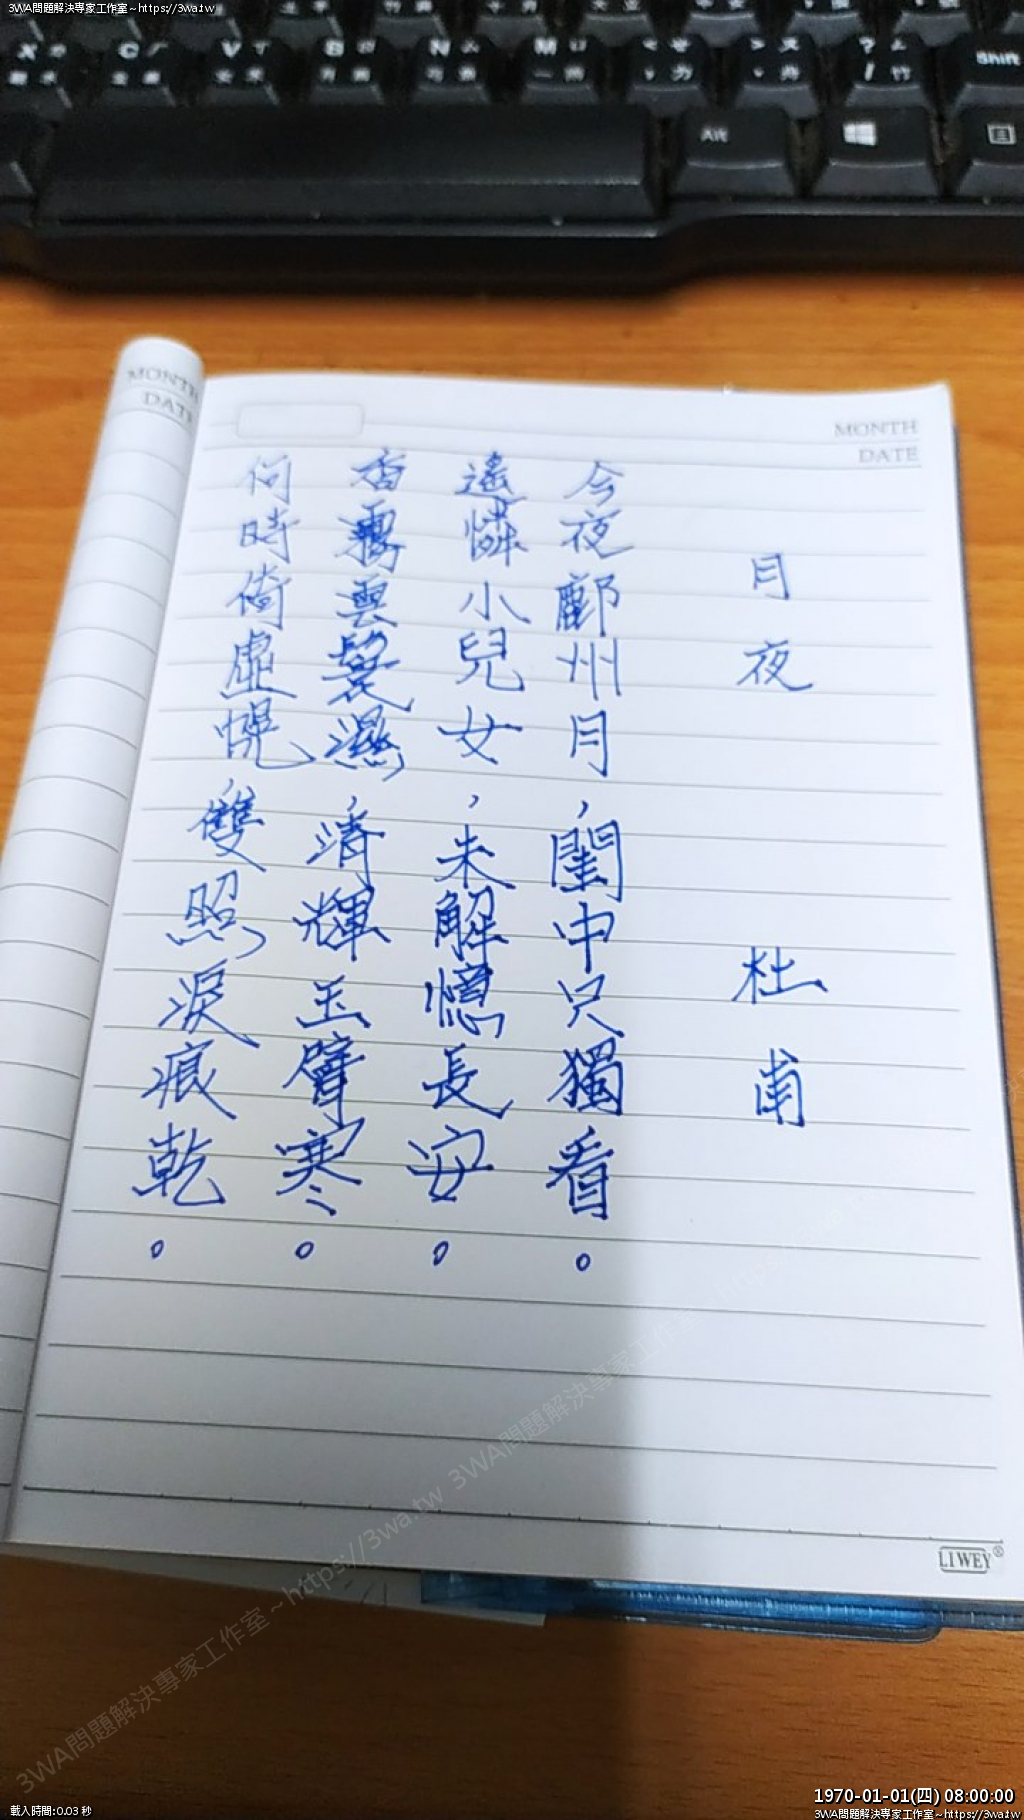 3WA問題解決專家工作室～https://3wa.tw
X
C
V
B
N
M
Shift
Alt
MONTH
DATE
MONTH
DATE
月夜 杜甫
今夜鄜州月，閨中只獨看。
遙憐小兒女，未解憶長安。
香霧雲鬟濕，清輝玉臂寒。
何時倚虛幌，雙照淚痕乾。
LIWEY®
3WA問題解決專家工作室～https://3wa.tw 3WA問題解決專家工作室～https://3wa.tw
載入時間:0.03 秒
1970-01-01(四) 08:00:00
3WA問題解決專家工作室～https://3wa.tw